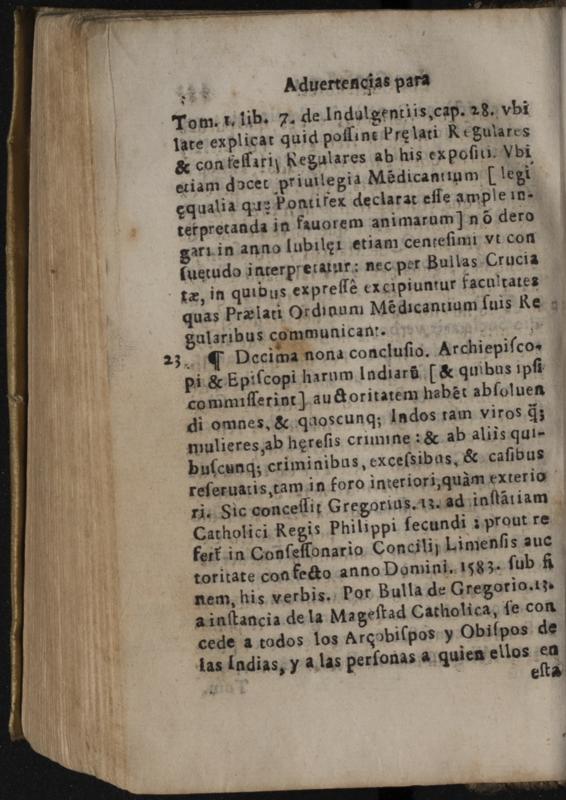 Aduertencias para
Tom. 1. lib. 7. de Indulgentiis, cap. 28. vbi
late explicat quid poſſint Pręlati Regulares
& confeſſarij Regulares ab his expoſiti. Vbi
etiam docet priuilegia Mẽdicantium [ legi
ęqualia quę Pontifex declarat eſſe ample in-
terpretanda in fauorem animarum] nõ dero
gari in anno Iubilęi etiam centeſimi vt con
ſuetudo interpretatur: nec per Bullas Crucia
tæ, in quibus expreſſê excipiuntur facultates
quas Prælati Ordinum Mẽdicantium ſuis Re
gularibus communicant.
23. ¶ Decima nona concluſio. Archiepiſco-
pi & Epiſcopi harum Indiarũ [ & quibus ipſi
commiſſerint] auctoritatem habẽt abſoluen
di omnes, & quoscunq; Indos tam viros q̃;
mulieres, ab hęreſis crimine : & ab aliis qui-
buſcunq; criminibus, exceſsibus, & caſibus
reſeruatis, tam in foro interiori, quàm exterio
ri. Sic conceſſit Gregorius. 13. ad inſtãtiam
Catholici Regis Philippi ſecundi : prout re
fert̃ in Confeſſonario Concilij Limenſis auc
toritate confecto anno Domini. 1583. ſub fi
nem, his verbis. Por Bulla de Gregorio. 13.
a inſtancia de la Mageſtad Catholica, ſe con
cede a todos los Arçobiſpos y Obiſpos de
las Indias, y a las perſonas a quien ellos en
eſta